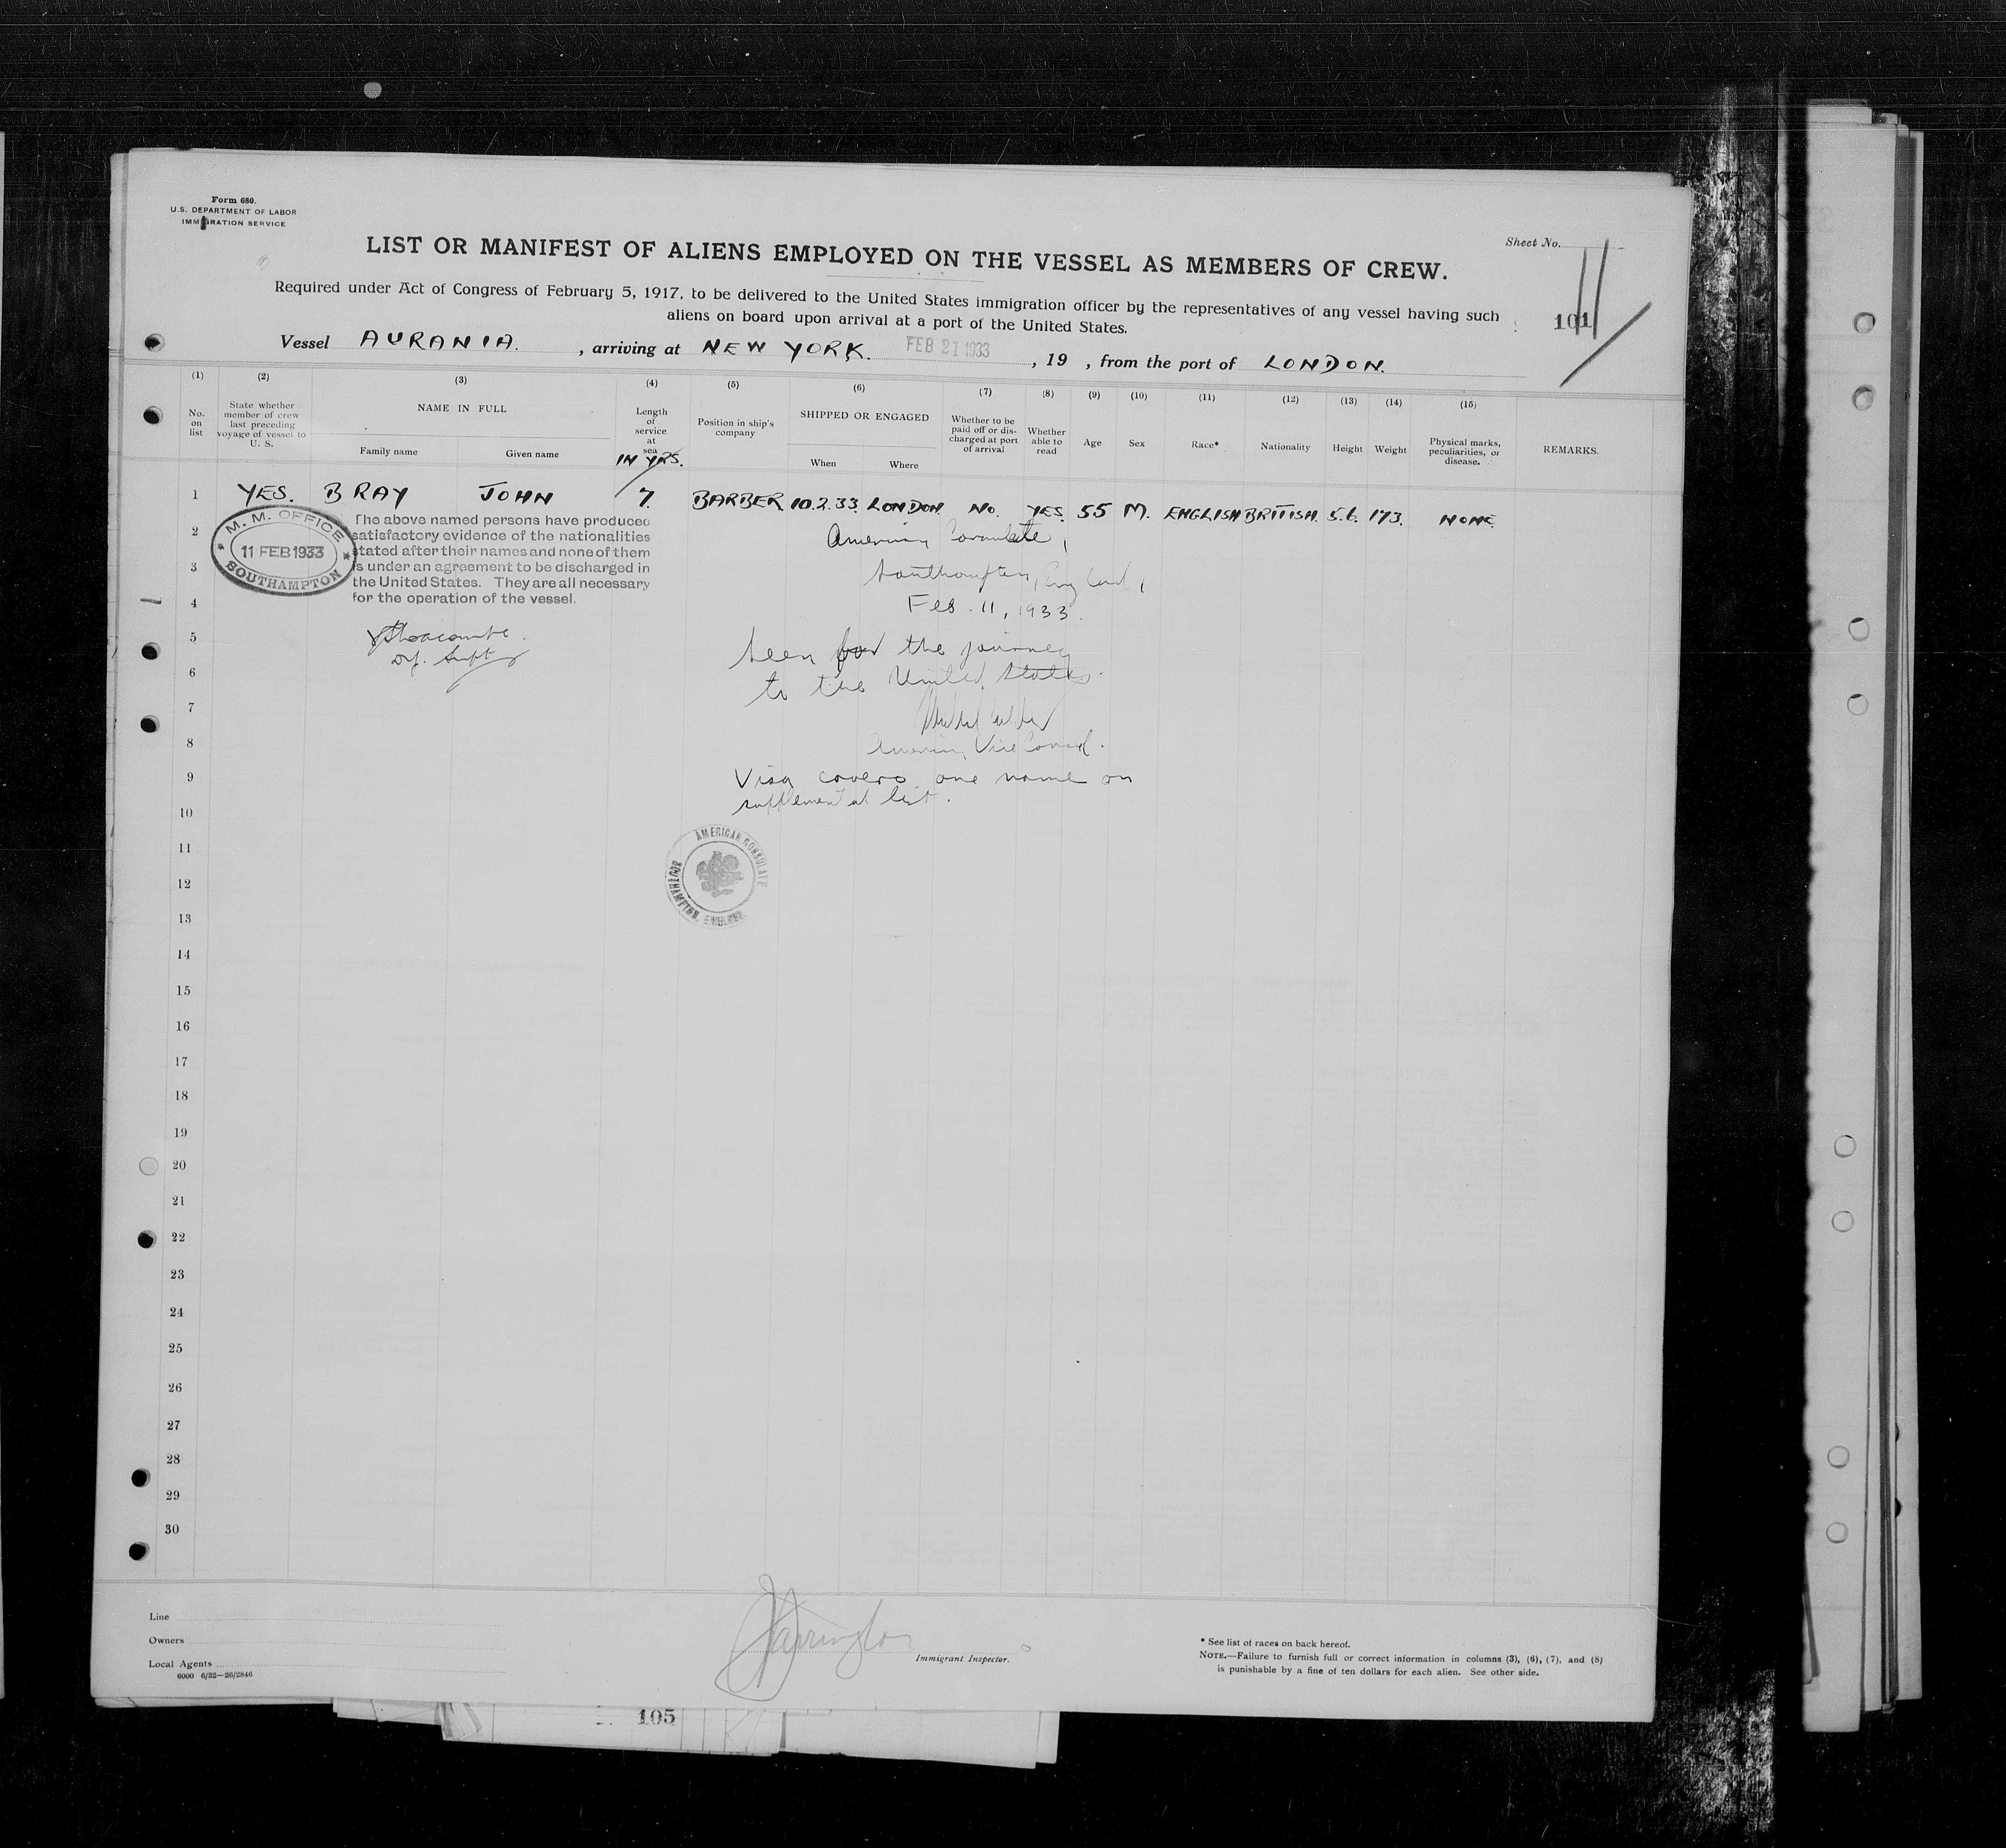 Form 680.
U.S. DEPARTMENT OF LABOR
IMMIGRATION SERVICE
Sheet No.
LIST OR MANIFEST OF ALIENS EMPLOYED ON THE VESSEL AS MEMBERS OF CREW.
Required under Act of Congress of February 5, 1917, to be delivered to the United States immigration officer by the representatives of any vessel having such
aliens on board upon arrival at a port of the United States.
101
Vessel AURANIA. , arriving at NEW YORK. FEB 21 1933 , 19 , from the port of LONDON.
(1) (2) (3) (4) (5) (6) (7) (8) (9) (10) (11) (12) (13) (14) (15)
No. on list
State whether member of crew last preceding voyage of vessel to U. S.
NAME IN FULL
Family name Given name
Length of service at sea
IN YRS.
Position in ship's company
SHIPPED OR ENGAGED
When Where
Whether to be paid off or discharged at port of arrival
Whether able to read
Age
Sex
Race*
Nationality
Height
Weight
Physical marks, peculiarities, or disease.
REMARKS.
1 YES. BRAY JOHN 7. BARBER 10.2.33. LONDON. NO. YES. 55 M. ENGLISH BRITISH. 5.6. 173. NONE.
M. M. OFFICE
11 FEB 1933
SOUTHAMPTON
The above named persons have produced
satisfactory evidence of the nationalities
stated after their names and none of them
is under an agreement to be discharged in
the United States. They are all necessary
for the operation of the vessel.
Dy. Supt
American Consulate,
Southampton, England,
Feb. 11, 1933.
Seen for the journey
to the United States.
American Vice Consul.
Visa covers one name on
supplemental list.
AMERICAN CONSULATE
SOUTHAMPTON, ENGLAND.
2
3
4
5
6
7
8
9
10
11
12
13
14
15
16
17
18
19
20
21
22
23
24
25
26
27
28
29
30
Line
Owners
Local Agents
6000 6/32—26/2846
Harrington
Immigrant Inspector.
* See list of races on back hereof.
NOTE.—Failure to furnish full or correct information in columns (3), (6), (7), and (8)
is punishable by a fine of ten dollars for each alien. See other side.
105